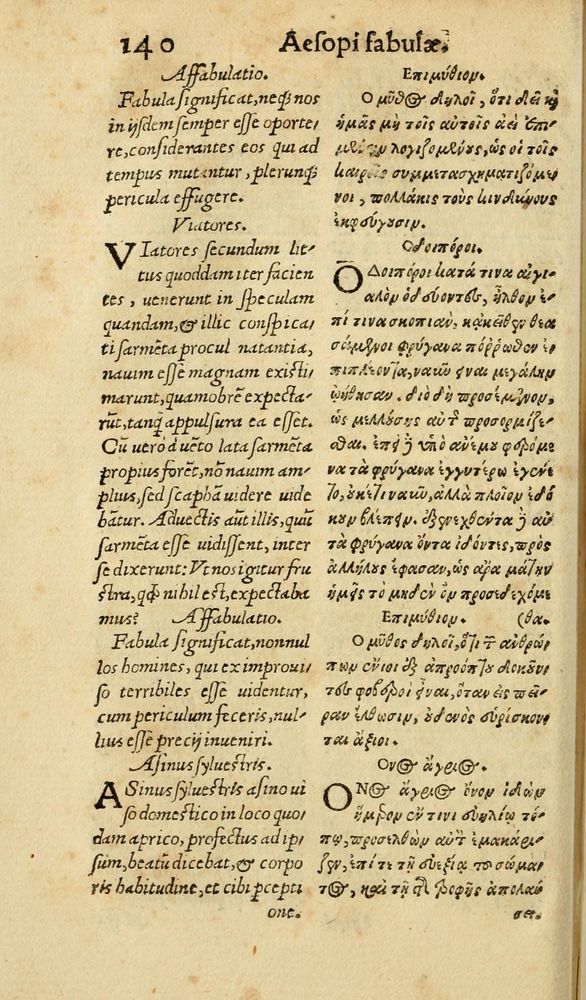 140 Aesopi fabulæ.
Affabulatio.
Fabula significat, neq; nos
in ijsdem semper esse oporte/
re, considerantes eos qui ad
tempus mutantur, plerunq;
pericula effugere.
Viatores.
VIatores secundum lit/
tus quoddam iter facien
tes, uenerunt in speculam
quandam, & illic conspica/
ti sarmẽta procul natantia,
nauim esse magnam existi/
marunt, quamobrẽ expecta/
rũt, tanq̃ appulsura ea esset.
Cũ uero à uẽto lata sarmẽta
propius forẽt, nõ nauim am/
plius, sed scaphã uidere uide
bãtur. Aduectis aũt illis, quũ
sarmẽta esse uidissent, inter
se dixerunt: Vt nos igitur fru
stra, qd' nihil est, expectaba
mus? Affabulatio.
Fabula significat, nonnul
los homines, qui ex improui/
so terribiles esse uidentur,
cum periculum feceris, nul/
lius esse precij inueniri.
Asinus syluestris.
ASinus syluestris asino ui
so domestico in loco quo/
dam aprico, profectus ad ip/
sum, beatũ dicebat, & corpo
ris habitudine, et cibi pcepti
one.
Επιμύθιον.
Ο μῦθος δηλοῖ, ὅτι δεῖ καὶ
ἡμᾶς μὴ τοῖς αὐτοῖς ἀεὶ ἐπι/
λογιζομένους, ὡς οἱ τοῖς
καιροῖς συμμετασχηματιζόμε
νοι, πολλάκις τοὺς κινδύνους
ἐκφεύγουσιν.
Οδοιπόροι.
ΟΔοιπόροι κατά τινα αἰγι/
αλὸν ὁδεύοντες, ἦλθον ἐ/
πί τινα σκοπιάν, κἀκεῖθεν θεα
σάμενοι φρύγανα πόῤῥωθεν ἐ/
πιπλέοντα, ναῦν εἶναι μεγάλην
ᾠήθησαν. διὸ δὴ προσέμενον,
ὡς μελλούσης αὐτῆς προσορμίζε/
σθαι. ἐπεὶ δὲ ὑπὸ ἀνέμου φερόμε
να τὰ φρύγανα ἐγγυτέρω ἐγένε
το, οὐκέτι ναῦν, ἀλλὰ πλοῖον ἐδό
κουν βλέπειν. ἐξενεχθέντα δὲ αὐ
τὰ φρύγανα ὄντα ἰδόντες, πρὸς
ἀλλήλους ἔφασαν, ὡς ἄρα μάτην
ἡμεῖς τὸ μηδὲν ὂν προσεδεχόμε
Επιμύθιον. (θα.
Ο μῦθος δηλοῖ, ὅτι τῶν ἀνθρώ/
πων ἔνιοι ἐξ ἀπροόπτου δοκοῦν
τες φοβεροὶ εἶναι, ὅταν εἰς πεῖ/
ραν ἔλθωσιν, οὐδενὸς εὑρίσκον
ται ἄξιοι.
Ονος ἄγριος.
ΟΝος ἄγριος ὄνον ἰδὼν
ἥμερον ἔν τινι εὐηλίῳ τό/
πῳ, προσελθὼν αὐτὸν ἐμακάρι/
ζεν, ἐπί τε τῇ εὐεξίᾳ τοῦ σώμα/
τος, καὶ τῇ τῆς τροφῆς ἀπολαύ
σει.